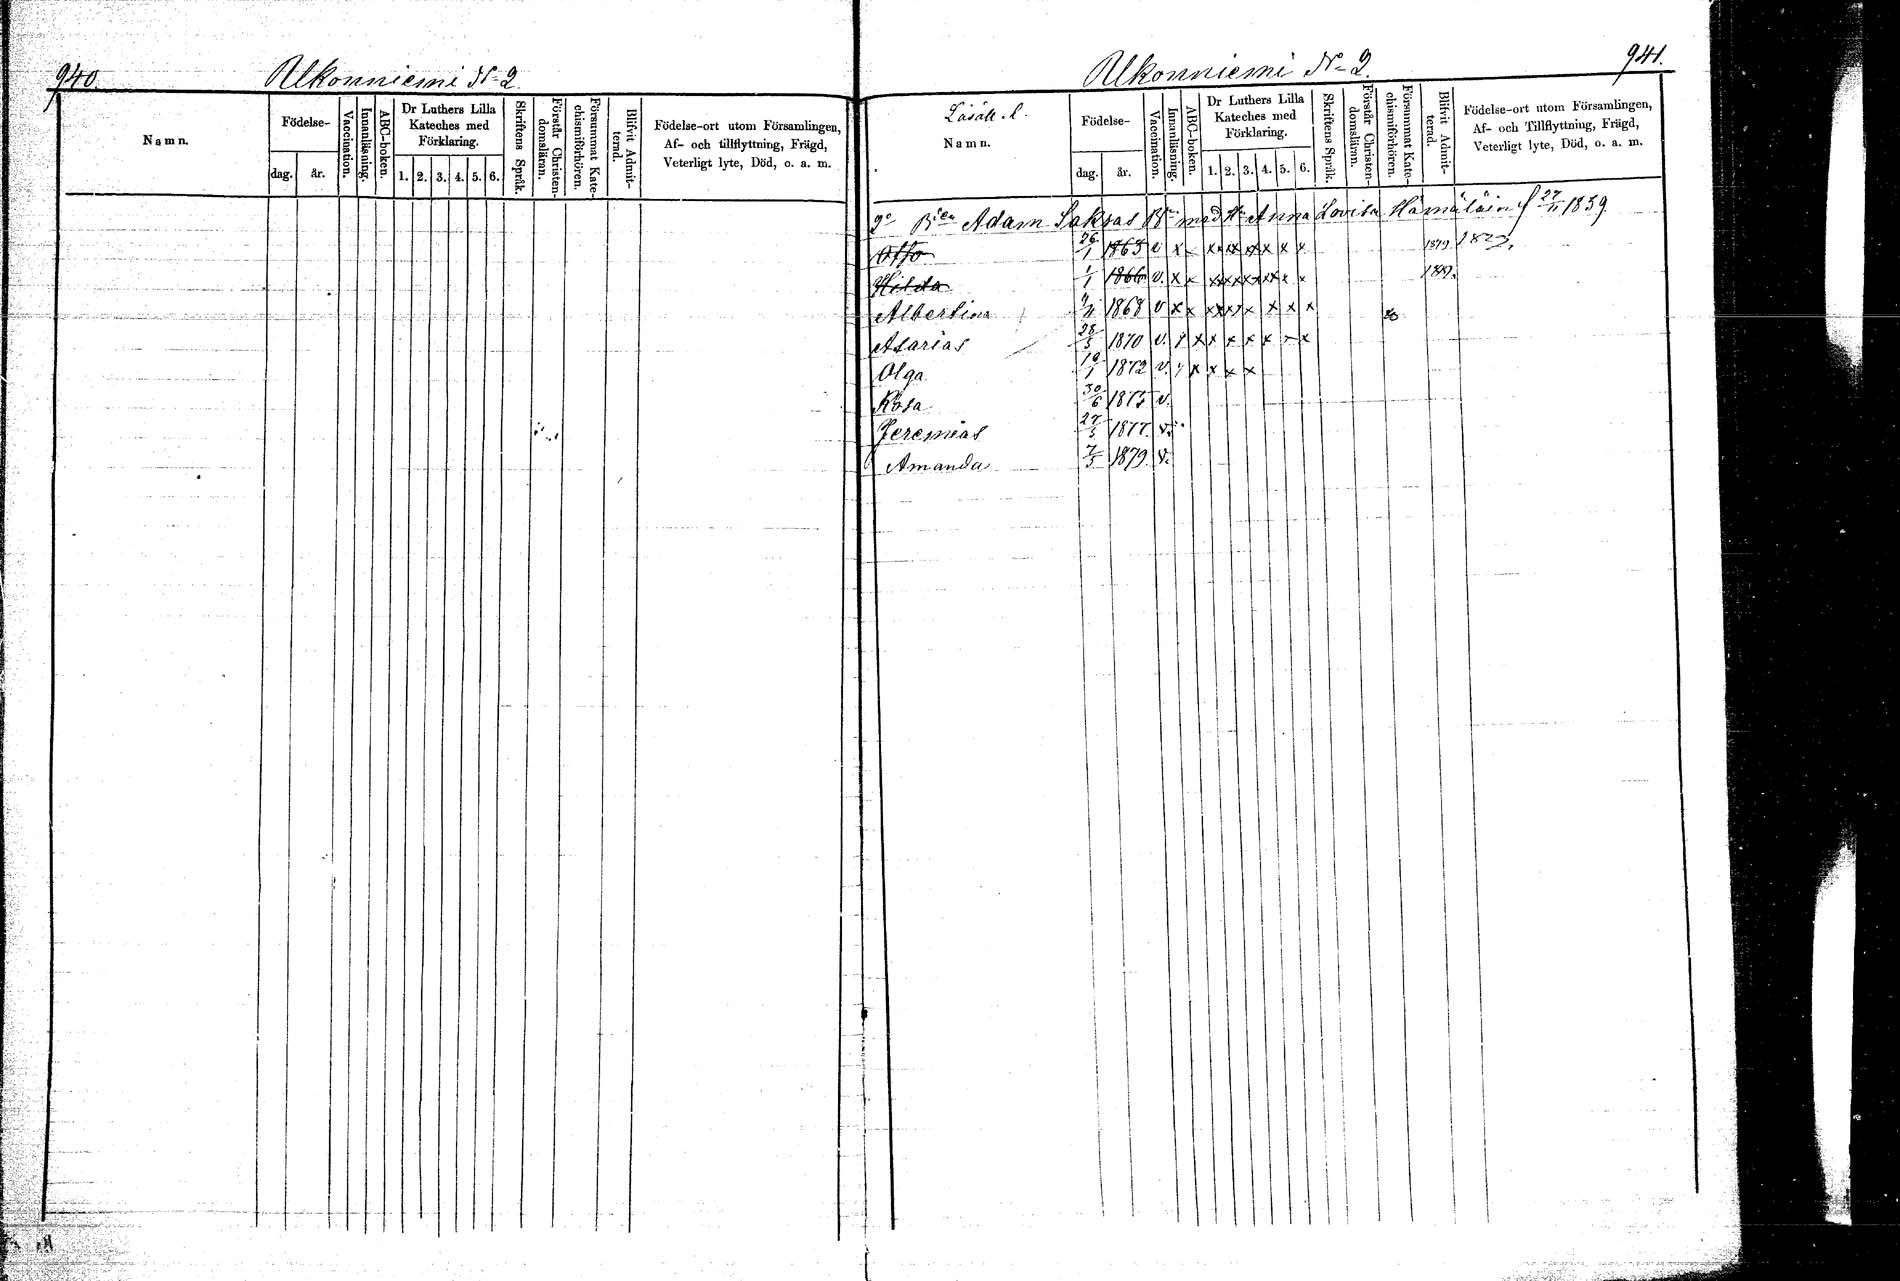 940.
Ulkonniemi No 2
Namn.
Födelse-
dag.
år.
Vaccination.
Innanläsning.
ABC-boken.
Dr Luthers Lilla Kateches med Förklaring.
1. 2. 3. 4. 5. 6.
Skriftens Språk.
Förstår Christen-domsläran.
Försummat Kate-chismiförhören.
Blifvit Admit-terad.
Födelse-ort utom Församlingen,
Af- och tillflyttning, Frägd,
Veterligt lyte, Död, o. a. m.
Ulkonniemi No 2.
941.
Namn.
Födelse-
dag.
år.
Vaccination.
Innanläsning.
ABC-boken.
Dr Luthers Lilla Kateches med Förklaring.
1. 2. 3. 4. 5. 6.
Skriftens Språk.
Förstår Christen-domsläran.
Försummat Kate-chismiförhören.
Blifvit Admit-terad.
Födelse-ort utom Församlingen,
Af- och Tillflyttning, Frägd,
Veterligt lyte, Död, o. a. m.
Adam Saksas med Anna Lovisa Hämäläin f 27/11 1839
Otto 26/1 1863 v x x x x x x x x 1879
Hilda 1/1 1866 v. x x x x x x x x
Albertina 1868 v x x x x x x x x
Asarias 28/5 1870 v. x x x x x x x
Olga 10/1 1872 v. x x x x
Rosa 30/6 1875 v.
Jeremias 27/3 1877. v.
Amanda 7/5 1879 v.